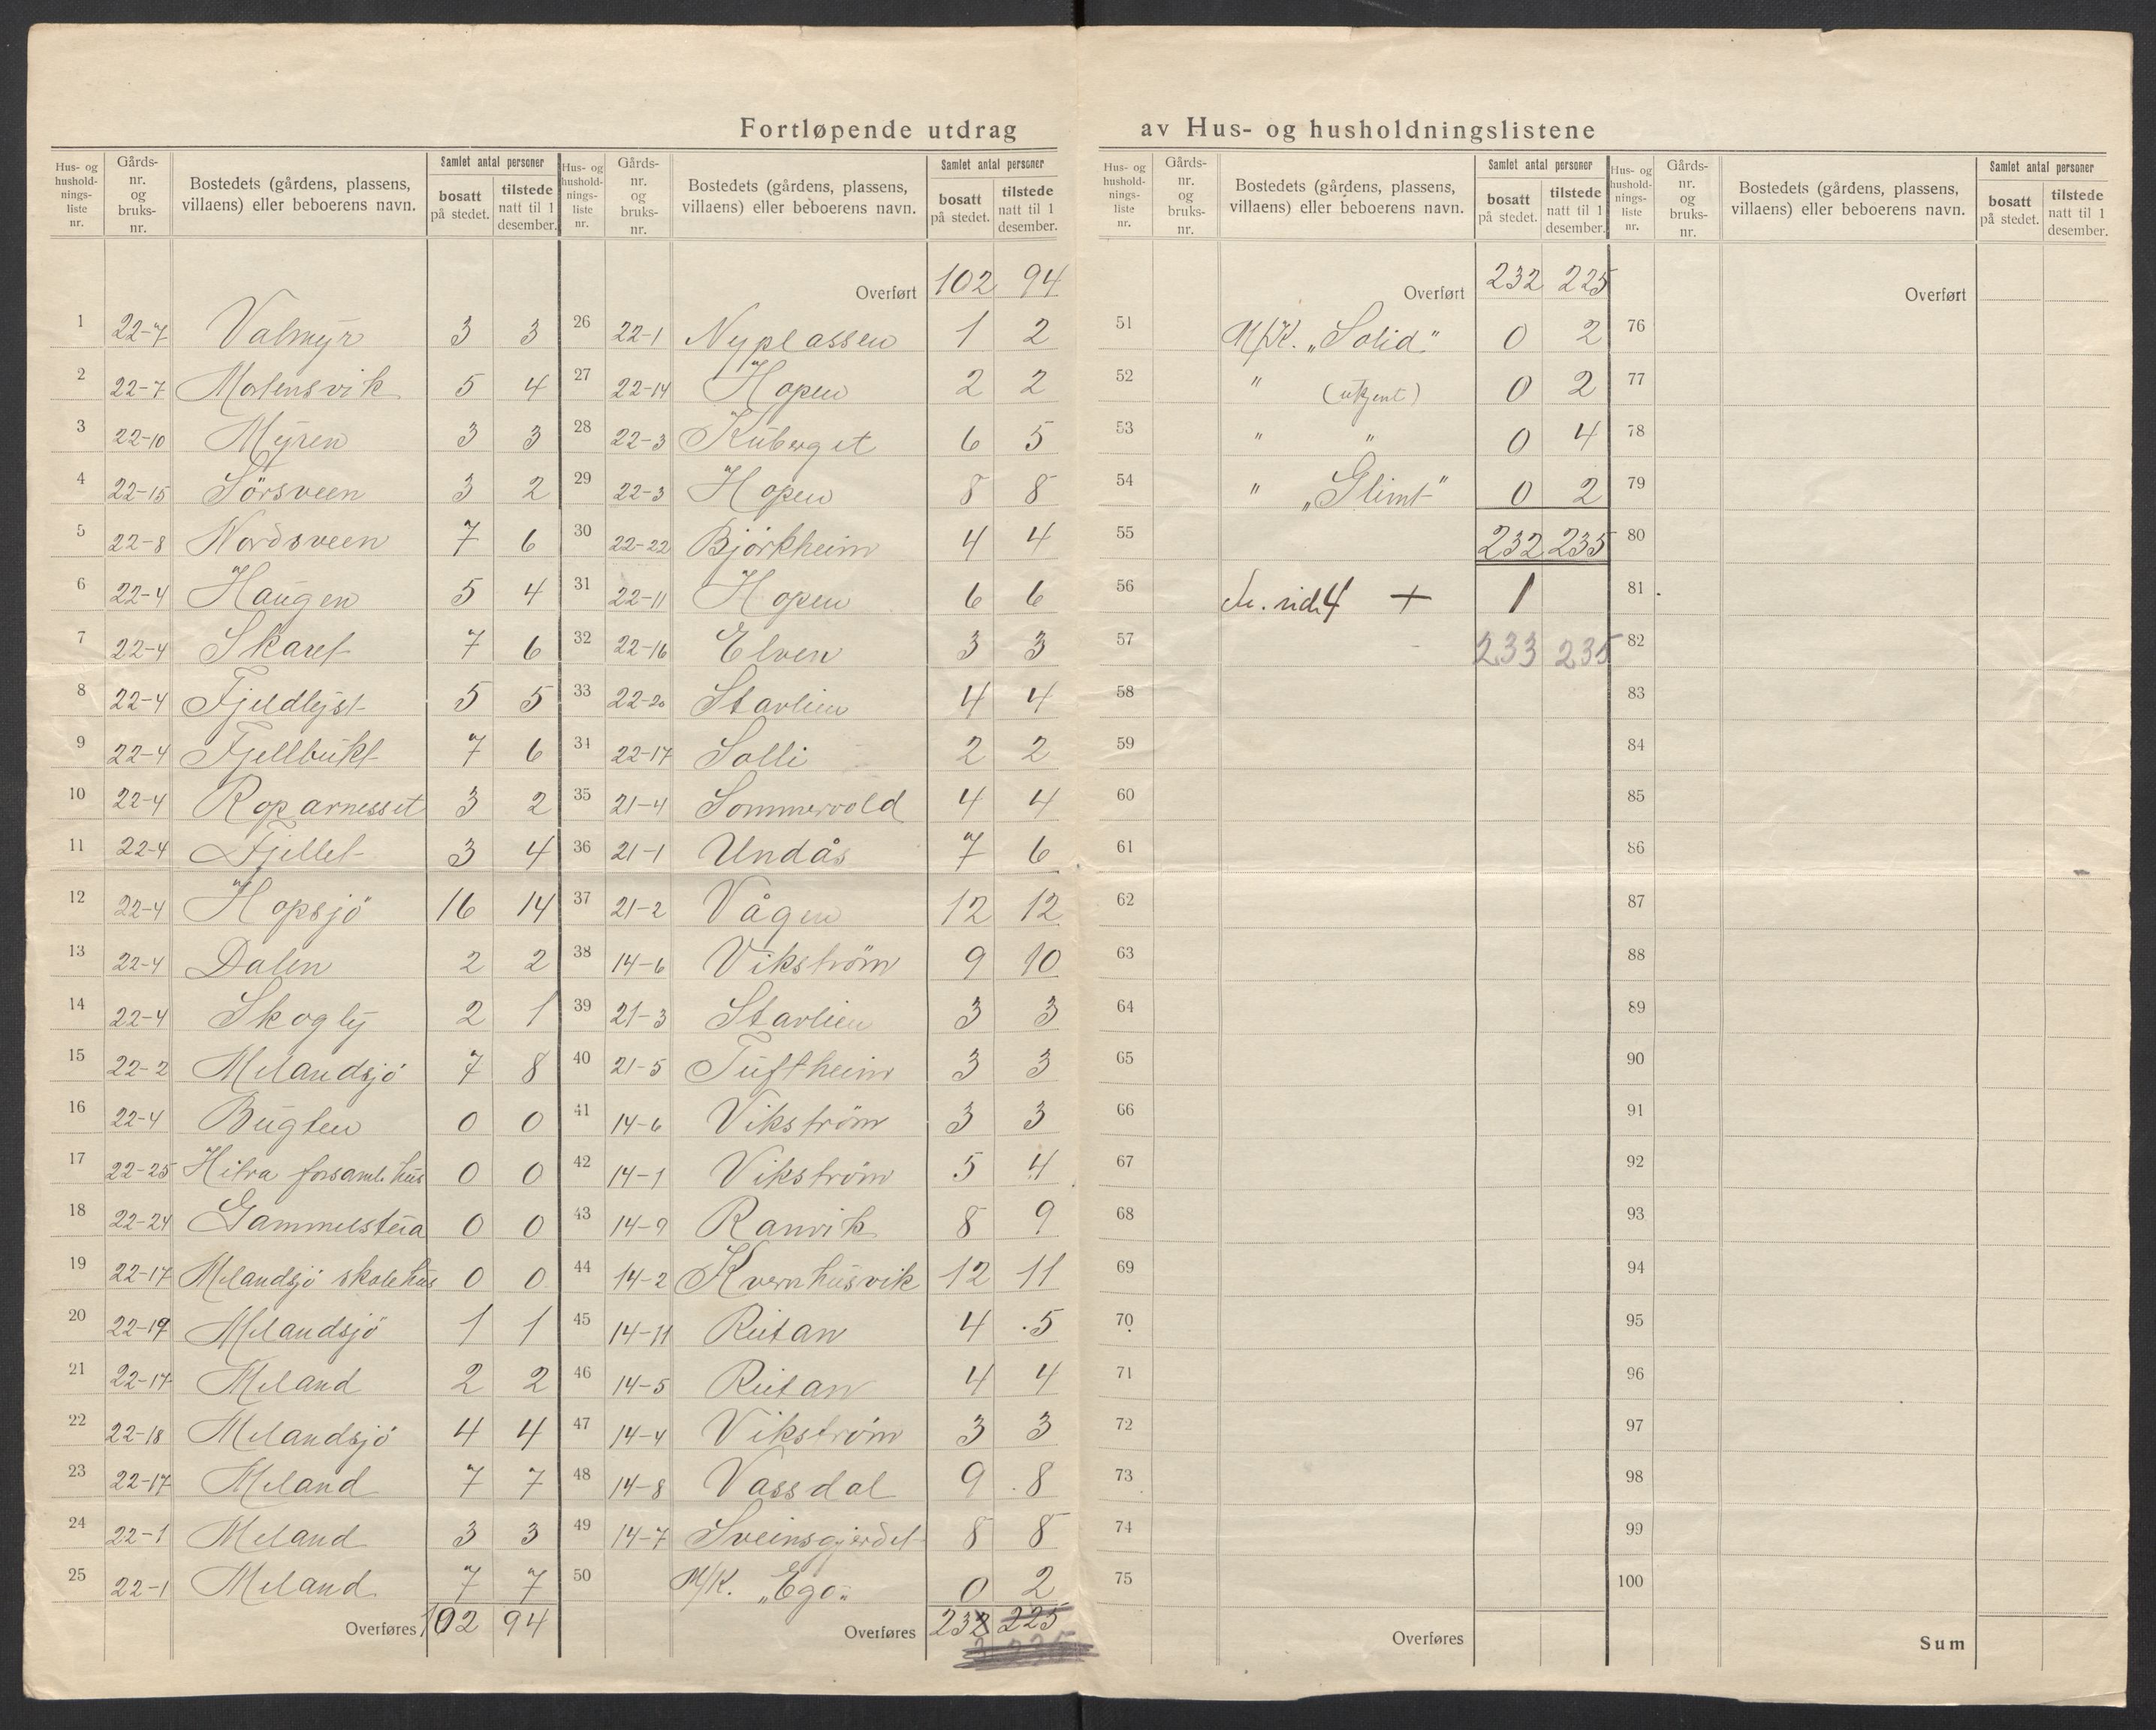 Fortløpende utdrag av Hus- og husholdningslistene
Hus- og hushold-nings-liste nr. Gårds-nr. og bruks-nr. Bostedets (gårdens, plassens, villaens) eller beboerens navn. Samlet antal personer bosatt på stedet. tilstede natt til 1 desember.
1 22-7 Valmyr 3 3
2 22-7 Mortensvik 5 4
3 22-10 Myren 3 3
4 22-15 Sörsveen 3 2
5 22-8 Nordsveen 7 6
6 22-4 Haugen 5 4
7 22-4 Skaret 7 6
8 22-4 Fjeldlyst 5 5
9 22-4 Fjellbukt 7 6
10 22-4 Roparnesset 3 2
11 22-4 Fjellet 3 4
12 22-4 Hopsjö 16 14
13 22-4 Dalen 2 2
14 22-4 Skogly 2 1
15 22-2 Melandsjö 7 8
16 22-4 Bugten 0 0
17 22-25 Hitra forsaml. hus 0 0
18 22-24 Gammelstua 0 0
19 22-17 Melandsjö skolehus 0 0
20 22-19 Melandsjö 1 1
21 22-17 Meland 2 2
22 22-18 Melandsjö 4 4
23 22-17 Meland 7 7
24 22-1 Meland 3 3
25 22-1 Meland 7 7
Overføres 102 94
Hus- og hushold-nings-liste nr. Gårds-nr. og bruks-nr. Bostedets (gårdens, plassens, villaens) eller beboerens navn. Samlet antal personer bosatt på stedet. tilstede natt til 1 desember.
Overført 102 94
26 22-1 Nyplassen 1 2
27 22-14 Hopen 2 2
28 22-3 Kuberget 6 5
29 22-3 Hopen 8 8
30 22-22 Björkheim 4 4
31 22-11 Hopen 6 6
32 22-16 Elven 3 3
33 22-20 Starlien 4 4
34 22-17 Solli 2 2
35 21-4 Sommervold 4 4
36 21-1 Undås 7 6
37 21-2 Vågen 12 12
38 14-6 Vikström 9 10
39 21-3 Starlien 3 3
40 21-5 Tuftheim 3 3
41 14-6 Vikström 3 3
42 14-1 Vikström 5 4
43 14-9 Ranvik 8 9
44 14-2 Kvernhusvik 12 11
45 14-11 Rutan 4 5
46 14-5 Rutan 4 4
47 14-4 Vikström 3 3
48 14-8 Vassdal 9 8
49 14-7 Sveinsgjerdet 8 8
50 M/K. „Ego" 0 2
Overføres 232 225
Hus- og hushold-nings-liste nr. Gårds-nr. og bruks-nr. Bostedets (gårdens, plassens, villaens) eller beboerens navn. Samlet antal personer bosatt på stedet. tilstede natt til 1 desember.
Overført 232 225
51 M/K. „Solid" 0 2
52 " (ukjent) 0 2
53 " " 0 4
54 " „Glimt" 0 2
55 232 235
56 + 1
57 233 235
58
59
60
61
62
63
64
65
66
67
68
69
70
71
72
73
74
75
Overføres
Hus- og hushold-nings-liste nr. Gårds-nr. og bruks-nr. Bostedets (gårdens, plassens, villaens) eller beboerens navn. Samlet antal personer bosatt på stedet. tilstede natt til 1 desember.
Overført
76
77
78
79
80
81
82
83
84
85
86
87
88
89
90
91
92
93
94
95
96
97
98
99
100
Sum